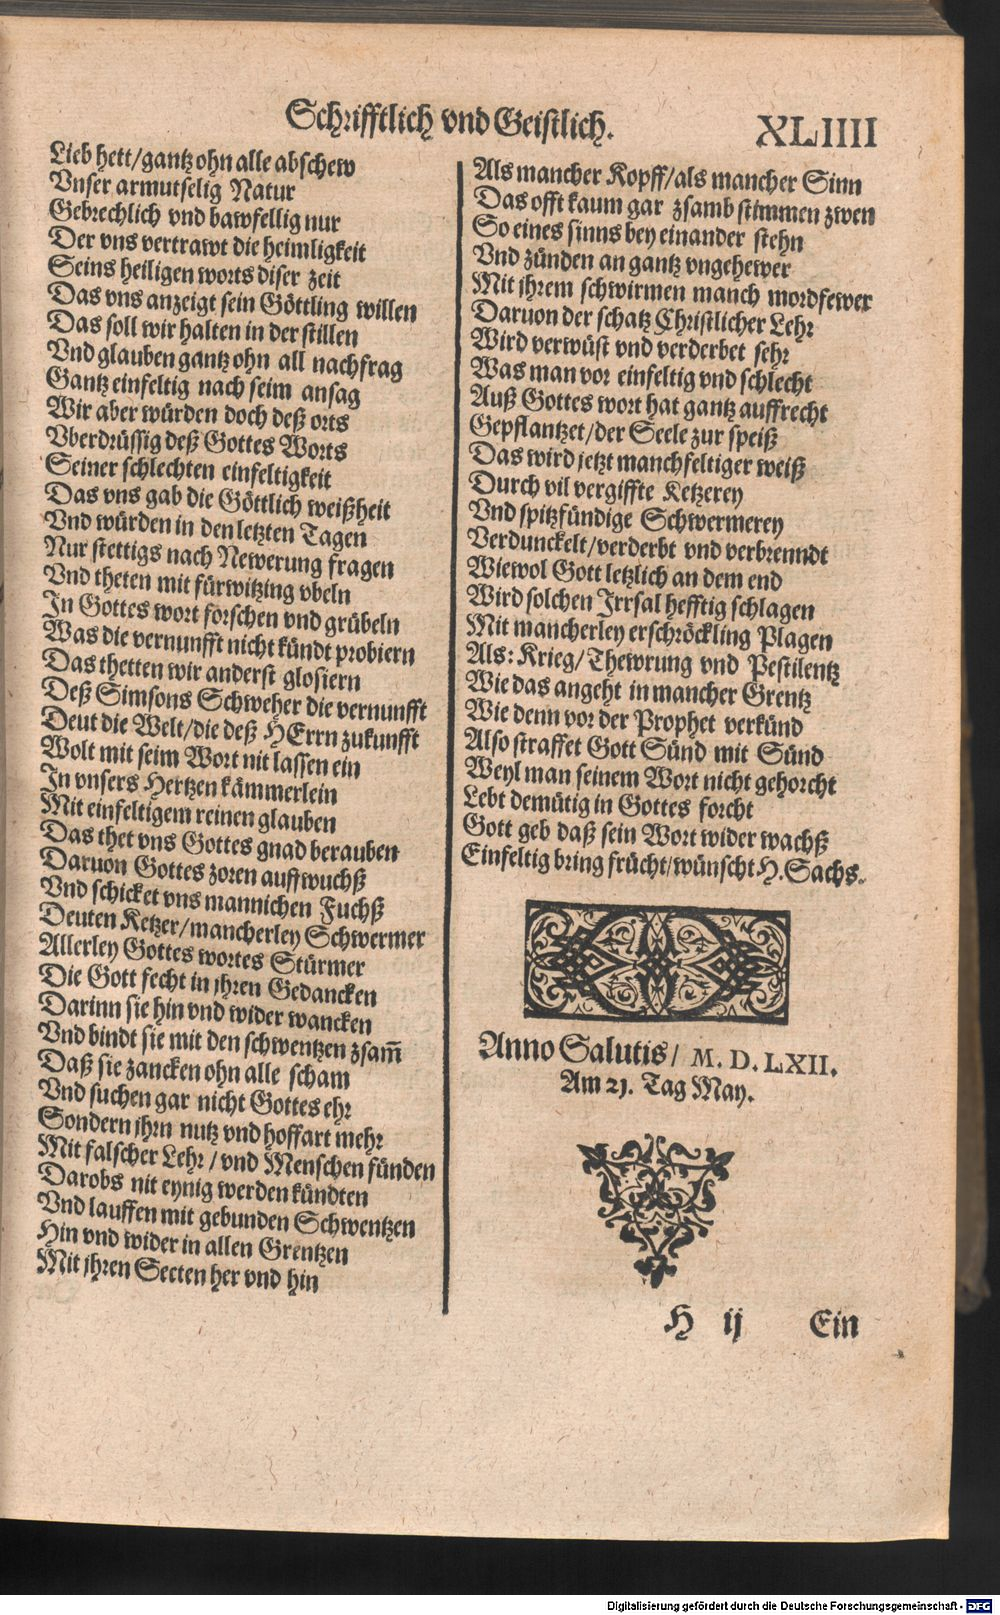 Schrifftlich vnd Geistlich.
XLIIII
Lieb hett/gantz ohn alle abschew
Vnser armutselig Natur
Gebrechlich vnd bawfellig nur
Der vns vertrawt die heimligkeit
Seins heiligen worts diser zeit
Das vns anzeigt sein Göttling willen
Das soll wir halten in der stillen
Vnd glauben gantz ohn all nachfrag
Gantz einfeltig nach seim ansag
Wir aber würden doch deß orts
Vberdrüssig deß Gottes Worts
Seiner schlechten einfeltigkeit
Das vns gab die Göttlich weißheit
Vnd würden in den letzten Tagen
Nur stettigs nach Newerung fragen
Vnd theten mit fürwitzing vbeln
In Gottes wort forschen vnd grübeln
Was die vernunfft nicht kündt probiern
Das thetten wir anderst glosiern
Deß Simsons Schweher die vernunfft
Deut die Welt/die deß HErrn zukunfft
Wolt mit seim Wort nit lassen ein
In vnsers Hertzen kämmerlein
Mit einfeltigem reinen glauben
Das thet vns Gottes gnad berauben
Daruon Gottes zoren aufftwuchß
Vnd schicket vns mannichen Fuchß
Deuten Ketzer/mancherley Schwermer
Allerley Gottes wortes Stürmer
Die Gott fecht in jhren Gedancken
Darinn sie hin vnd wider wancken
Vnd bindt sie mit den schwentzen zsam̄
Daß sie zancken ohn alle scham
Vnd suchen gar nicht Gottes ehr
Sondern jhrn nutz vnd hoffart mehr
Mit falscher Lehr/vnd Menschen fünden
Darobs nit eynig werden kündten
Vnd lauffen mit gebunden Schwentzen
Hin vnd wider in allen Grentzen
Mit jhren Secten her vnd hin
Als mancher Kopff/als mancher Sinn
Das offt kaum gar zsamb stimmen zwen
So eines sinns bey einander stehn
Vnd zünden an gantz vngehewer
Mit jhrem schwirmen manch mordfewer
Daruon der schatz Christlicher Lehr
Wird verwüst vnd verderbet sehr
Was man vor einfeltig vnd schlecht
Auß Gottes wort hat gantz auffrecht
Gepflantzet/der Seele zur speiß
Das wird jetzt manchfeltiger weiß
Durch vil vergiffte Ketzerey
Vnd spitzfündige Schwermerey
Verdunckelt/verderbt vnd verbrenndt
Wiewol Gott letzlich an dem end
Wird solchen Irrsal hefftig schlagen
Mit mancherley erschröckling Plagen
Als: Krieg/Thewrung vnd Pestilentz
Wie das angeht in mancher Grentz
Wie denn vor der Prophet verkünd
Also straffet Gott Sünd mit Sünd
Weyl man seinem Wort nicht gehorcht
Lebt demütig in Gottes forcht
Gott geb daß sein Wort wider wachß
Einfeltig bring frücht/wünscht H. Sachs.
Anno Salutis/ M. D. LXII.
Am 21. Tag May.
H ij
Ein
Digitalisierung gefördert durch die Deutsche Forschungsgemeinschaft - DFG